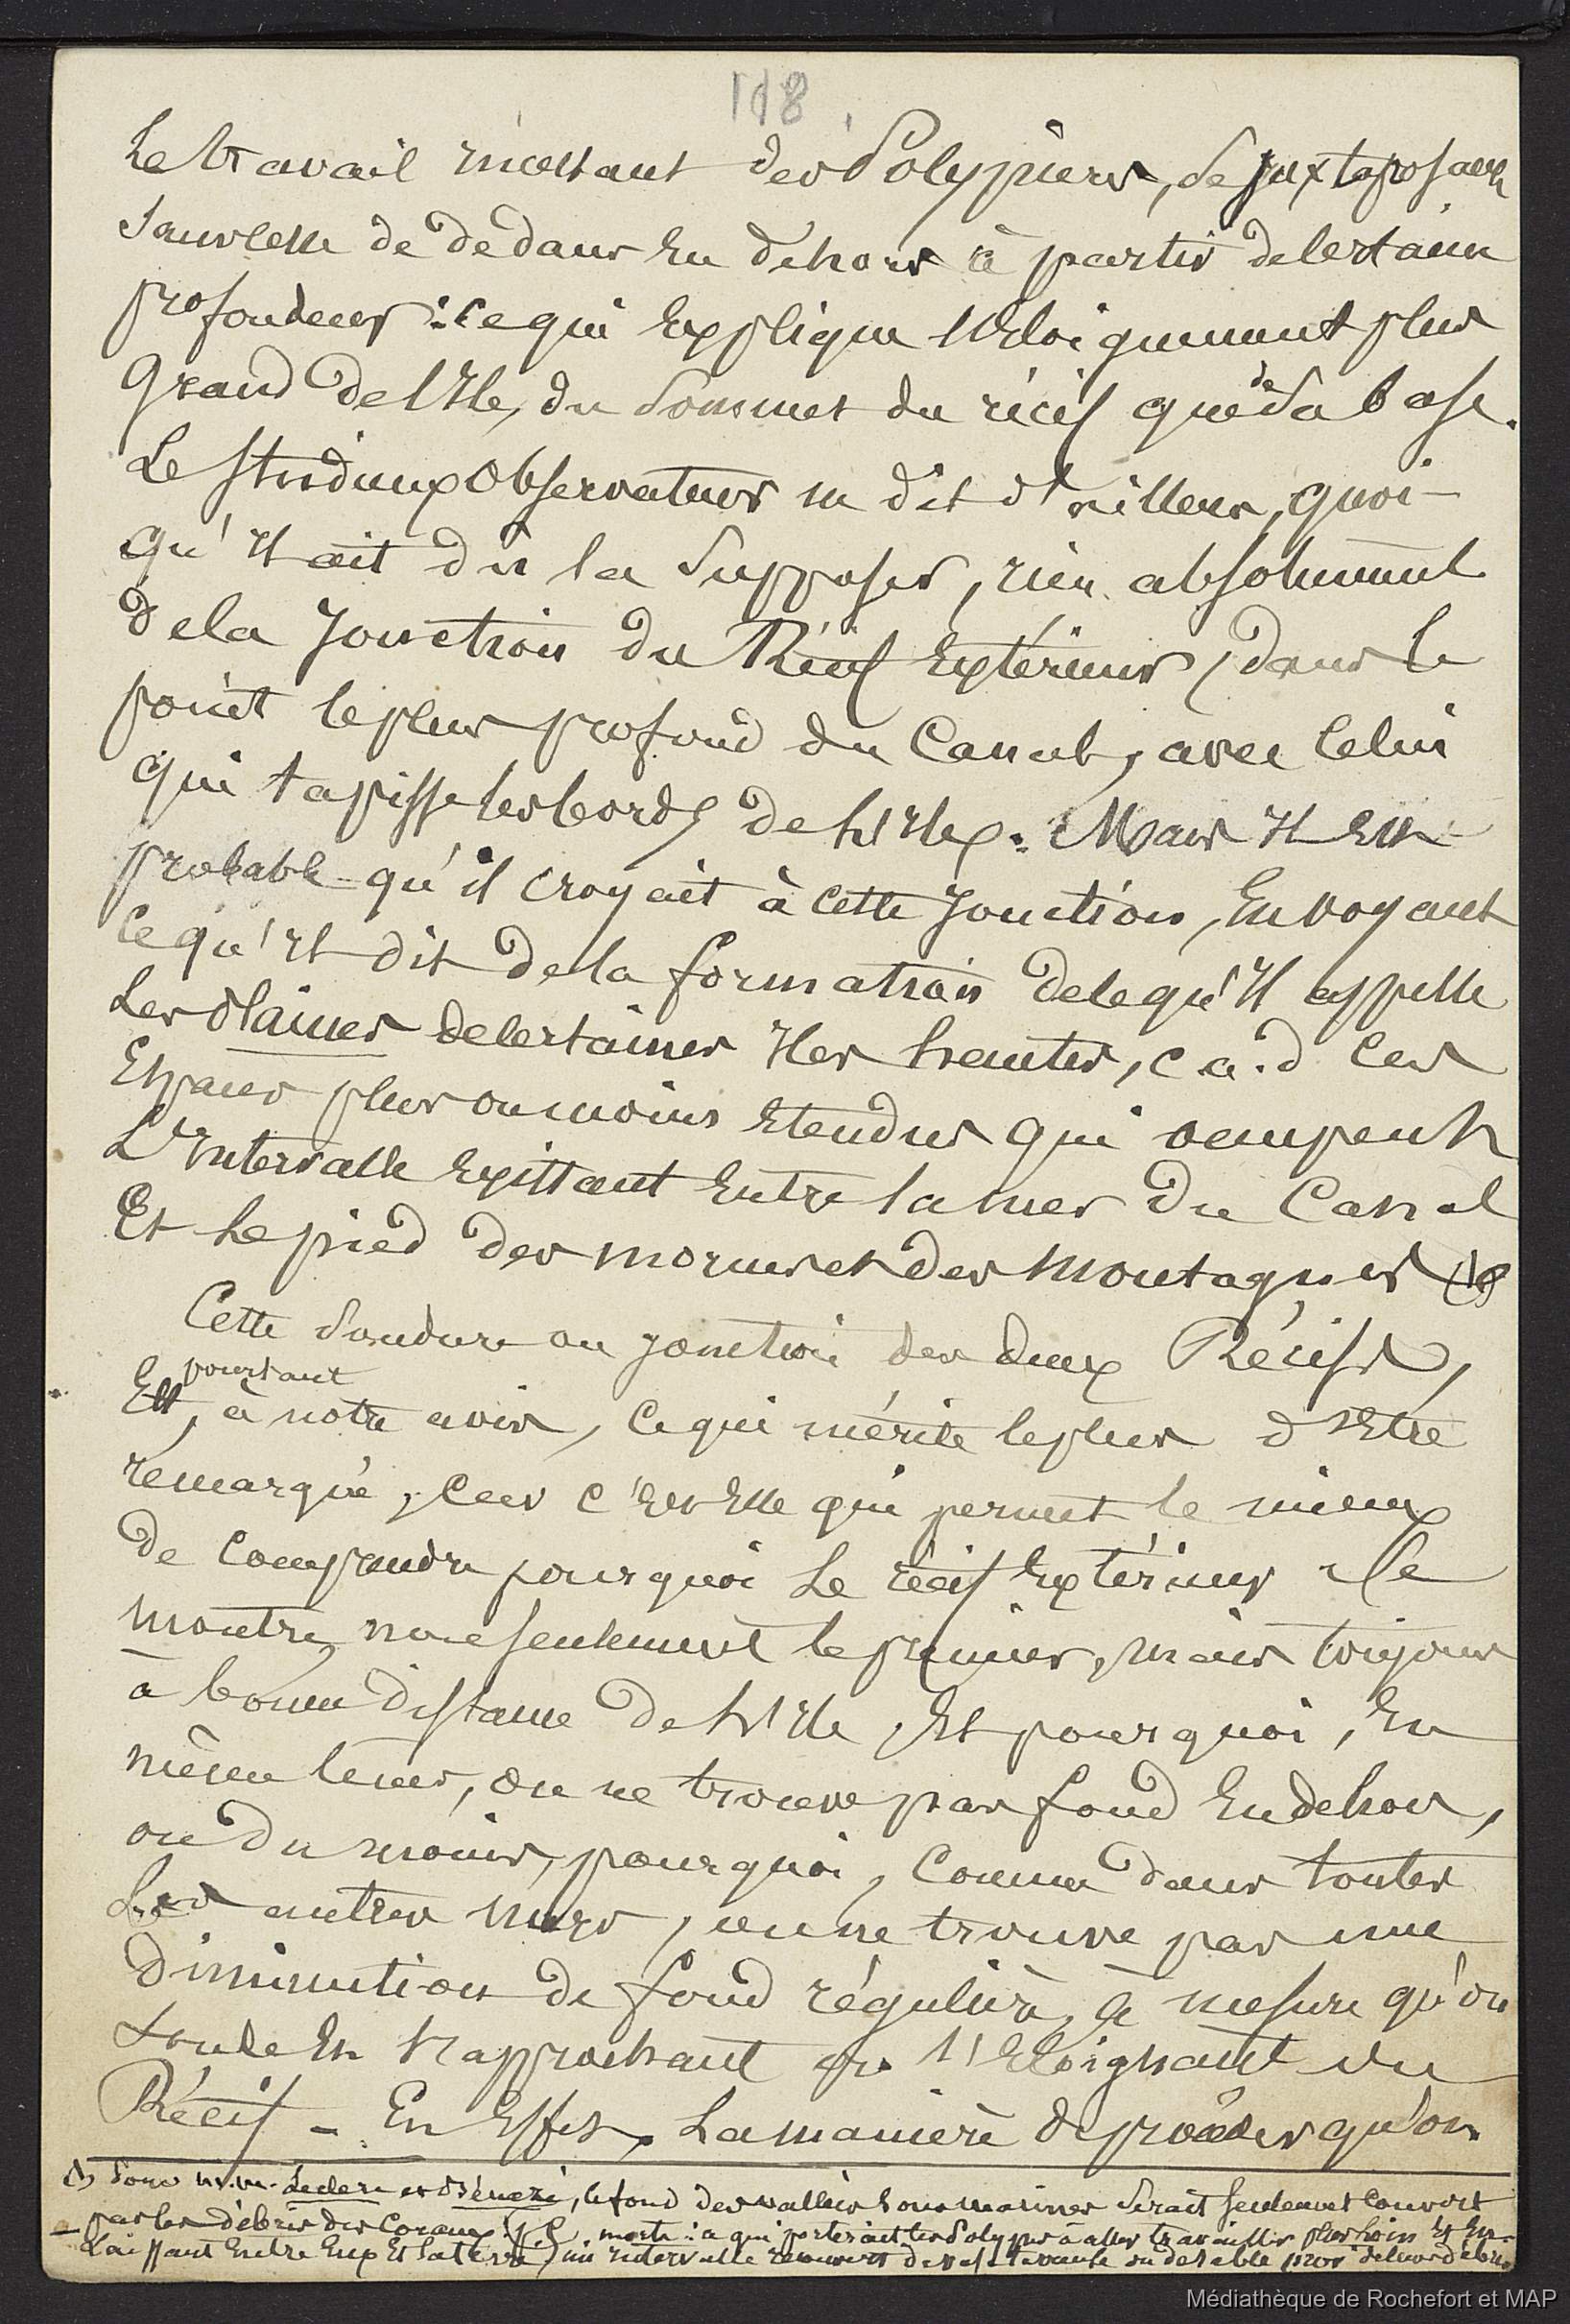 118
Le travail incessant des Polypiers, se juxtaposant
sans cesse de dedans en dehors à partir de certaine
profondeur : ce qui explique l'éloignement plus
grand de l'Ile, du sommet du récif que de sa base.
Le studieux observateur ne dit d'ailleurs, quoi-
qu'Il ait dû la supposer, rien absolument
de la Jonction du Récif Extérieur, dans le
point le plus profond du Canal, avec celui
qui tapisse les bords de l'Ile. Mais Il Est
probable qu'il croyait à cette Jonction, En voyant
ce qu'Il dit de la formation de ce qu'Il appelle
Les Plaines de certaines Iles hautes, c.à.d ces
Espaces plus ou moins Etendus qui occupent
L'Intervalle Existant Entre la mer du Canal
Et le pied des mornes et des montagnes (1)
Cette Soudure ou jonction des deux Récifs,
Est pourtant, à notre avis, ce qui mérite le plus d'Etre
remarqué, car c'Est Elle qui permet le mieux
de comprendre pourquoi Le récif Extérieur se
montre, non seulement le premier, mais toujours
à bonne distance de l'Ile, Et pourquoi, En
même tems, on ne trouve pas fond En dehors,
ou du moins, pourquoi, comme dans toutes
Les autres mers, on ne trouve pas une
diminution de fond régulière, à mesure qu'on
sonde En s'approchant ou s'Eloignant du
Récif - En Effet, La manière de procéder qu'on
(1) Pour M.M. Leclerc et Bénézé, le fond des vallées sous marines serait seulement couvert
par les débris des Coraux morts : ce qui porterait les Polypes à aller travailler plus loin Et En
Laissant Entre Eux Et la terre, un intervalle recouvert de ou de sable de leurs débris